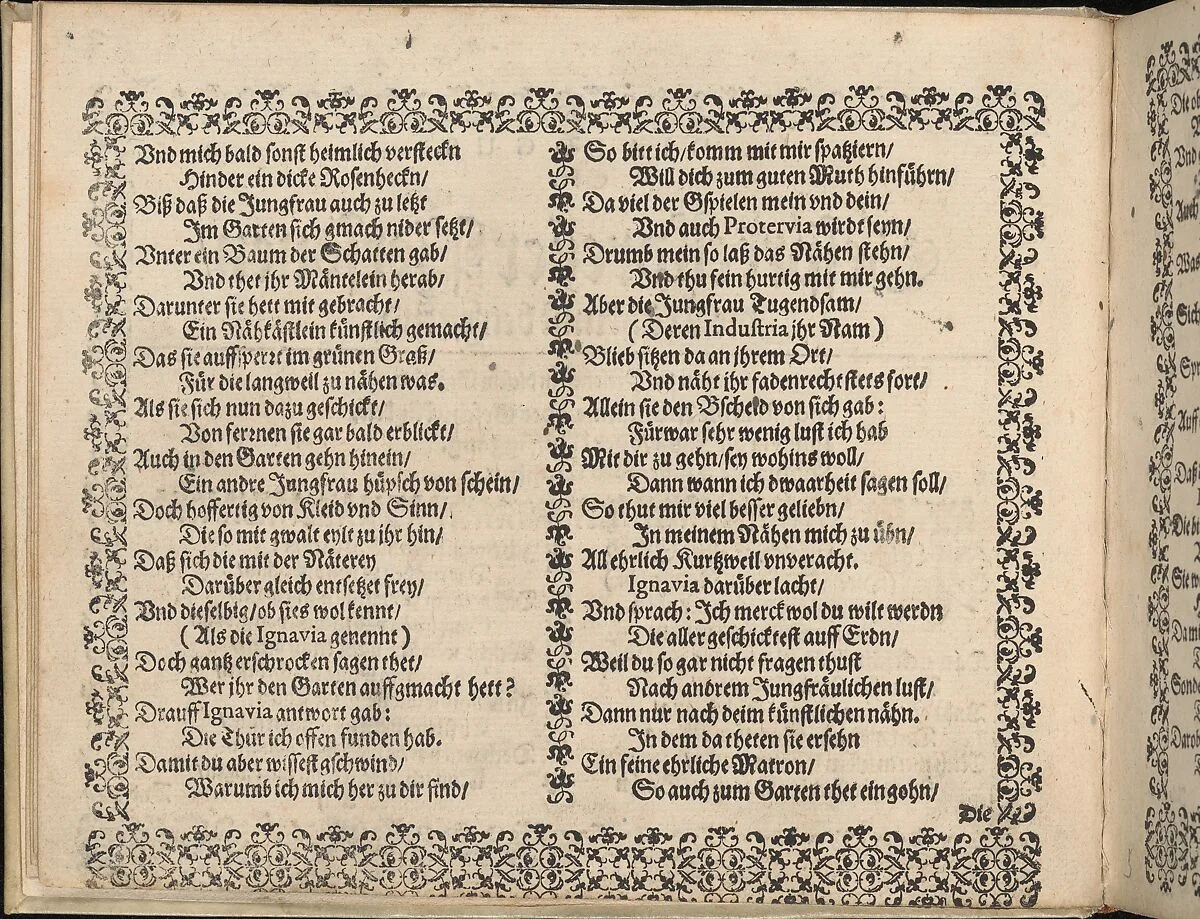 Vnd mich bald sonst heimlich versteckn
Hinder ein dicke Rosenheckn/
Biß daß die Jungfrau auch zu letzt
Im Garten sich gmach nider setzt/
Vnter ein Baum der Schatten gab/
Vnd thet jhr Mäntelein herab/
Darunter sie hett mit gebracht/
Ein Nähkästlein künstlich gemacht/
Das sie auffsperrt im grünen Graß/
Für die langweil zu nähen was.
Als sie sich nun dazu geschickt/
Von fernen sie gar bald erblickt/
Auch in den Garten gehn hinein/
Ein andre Jungfrau hüpsch von schein/
Doch hoffertig von Kleid vnd Sinn/
Die so mit gwalt eylt zu jhr hin/
Daß sich die mit der Näterey
Darüber gleich entsetzet frey/
Vnd dieselbig/ob sies wol kennt/
(Als die Ignavia genennt)
Doch gantz erschrocken sagen thet/
Wer jhr den Garten auffgmacht hett?
Drauff Ignavia antwort gab:
Die Thür ich offen funden hab.
Damit du aber wissest gschwind/
Warumb ich mich her zu dir find/
So bitt ich/komm mit mir spatziern/
Will dich zum guten Muth hinführn/
Da viel der Gspielen mein vnd dein/
Vnd auch Protervia wirdt seyn/
Drumb mein so laß das Nähen stehn/
Vnd thu fein hurtig mit mir gehn.
Aber die Jungfrau Tugendsam/
(Deren Industria jhr Nam)
Blieb sitzen da an jhrem Ort/
Vnd näht jhr fadenrecht stets fort/
Allein sie den Bscheid von sich gab:
Fürwar sehr wenig lust ich hab
Mit dir zu gehn/sey wohins woll/
Dann wann ich dwaarheit sagen soll/
So thut mir viel besser geliebn/
In meinem Nähen mich zu übn/
All ehrlich Kurtzweil vnveracht.
Ignavia darüber lacht/
Vnd sprach: Ich merck wol du wilt werdn
Die aller geschicktest auff Erdn/
Weil du so gar nicht fragen thust
Nach andrem Jungfräulichen lust/
Dann nur nach deim künstlichen nähn.
In dem da theten sie ersehn
Ein feine ehrliche Matron/
So auch zum Garten thet eingohn/
Die